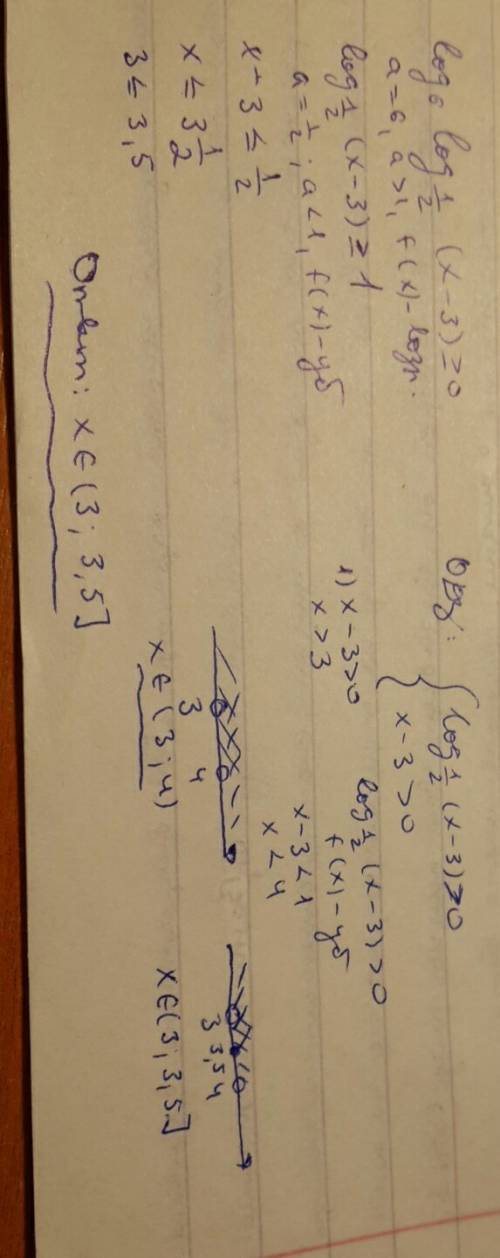 log₆ log½ (x-3) ≥ 0
a=6, a>1, f(x) - возр.
log½ (x-3) ≥ 1
a=½; a<1, f(x) - уб
x-3 ≤ ½
x ≤ 3½
3 ≤ 3,5
Ответ: x∈(3; 3,5]
ОДЗ: { log½ (x-3) > 0
x-3 > 0
1) x-3>0
x > 3
log½ (x-3) > 0
f(x) - уб
x-3 < 1
x < 4
3 4
x∈(3; 4)
3 3,5 4
x∈(3; 3,5]